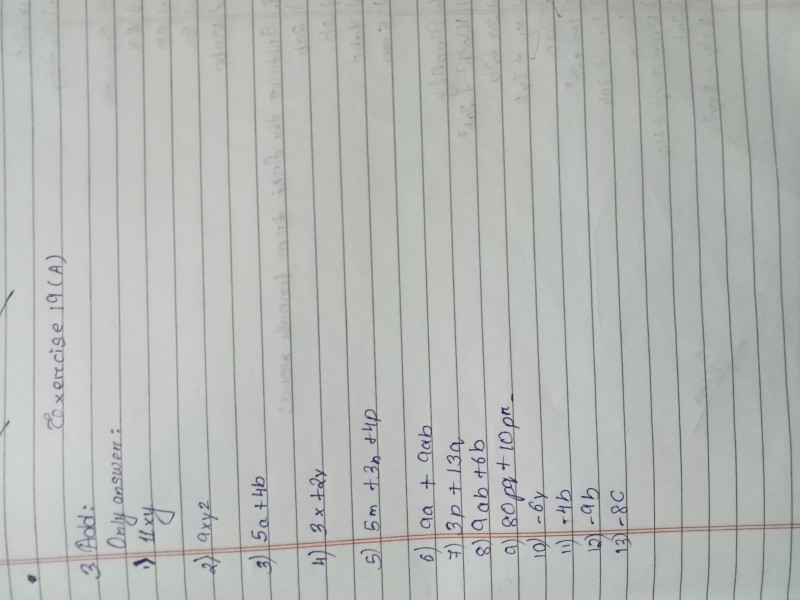 Exercise 19(A)
3 Add:
Only answer:
1) 11xy
2) 9xyz
3) 5a+4b
4) 3x+2y
5) 5m+3n+4p
6) 9a + 9ab
7) 3p+13q
8) 9ab+6b
9) 80pq+10pr
10) -6y
11) -4b
12) -9b
13) -8c